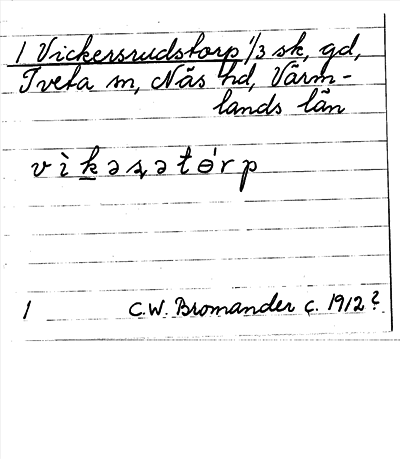 1 Vickersrudstorp 1/3 sk, gd,
Tveta sn, Näs hd, Värm-
lands län
v ì k ə ʂ ə t ɵ́ r p
1 C.W. Bromander c. 1912?